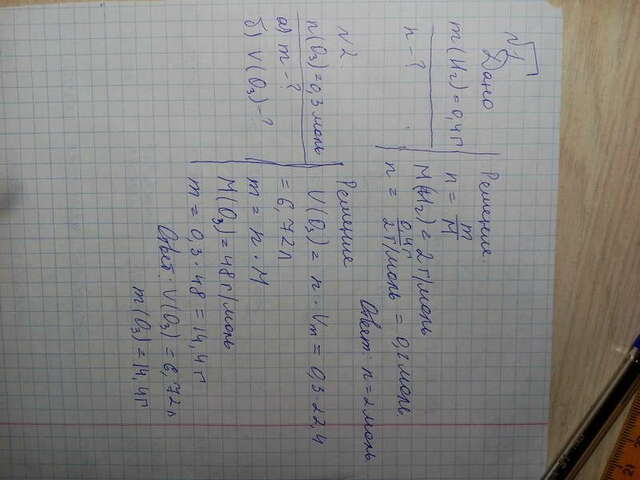 √1
Дано
m(H₂) = 0,4 г
n - ?
Решение.
n = m/M
M(H₂) = 2 г/моль
n = 0,4 г / 2 г/моль = 0,2 моль.
Ответ: n = 2 моль
√2
n(O₃) = 0,3 моль
а) m - ?
б) V(O₃) - ?
Решение
V(O₃) = n · Vm = 0,3 · 22,4
= 6,72 л
m = n · M
M(O₃) = 48 г/моль
m = 0,3 · 48 = 14,4 г
Ответ: V(O₃) = 6,72 л
m(O₃) = 14,4 г